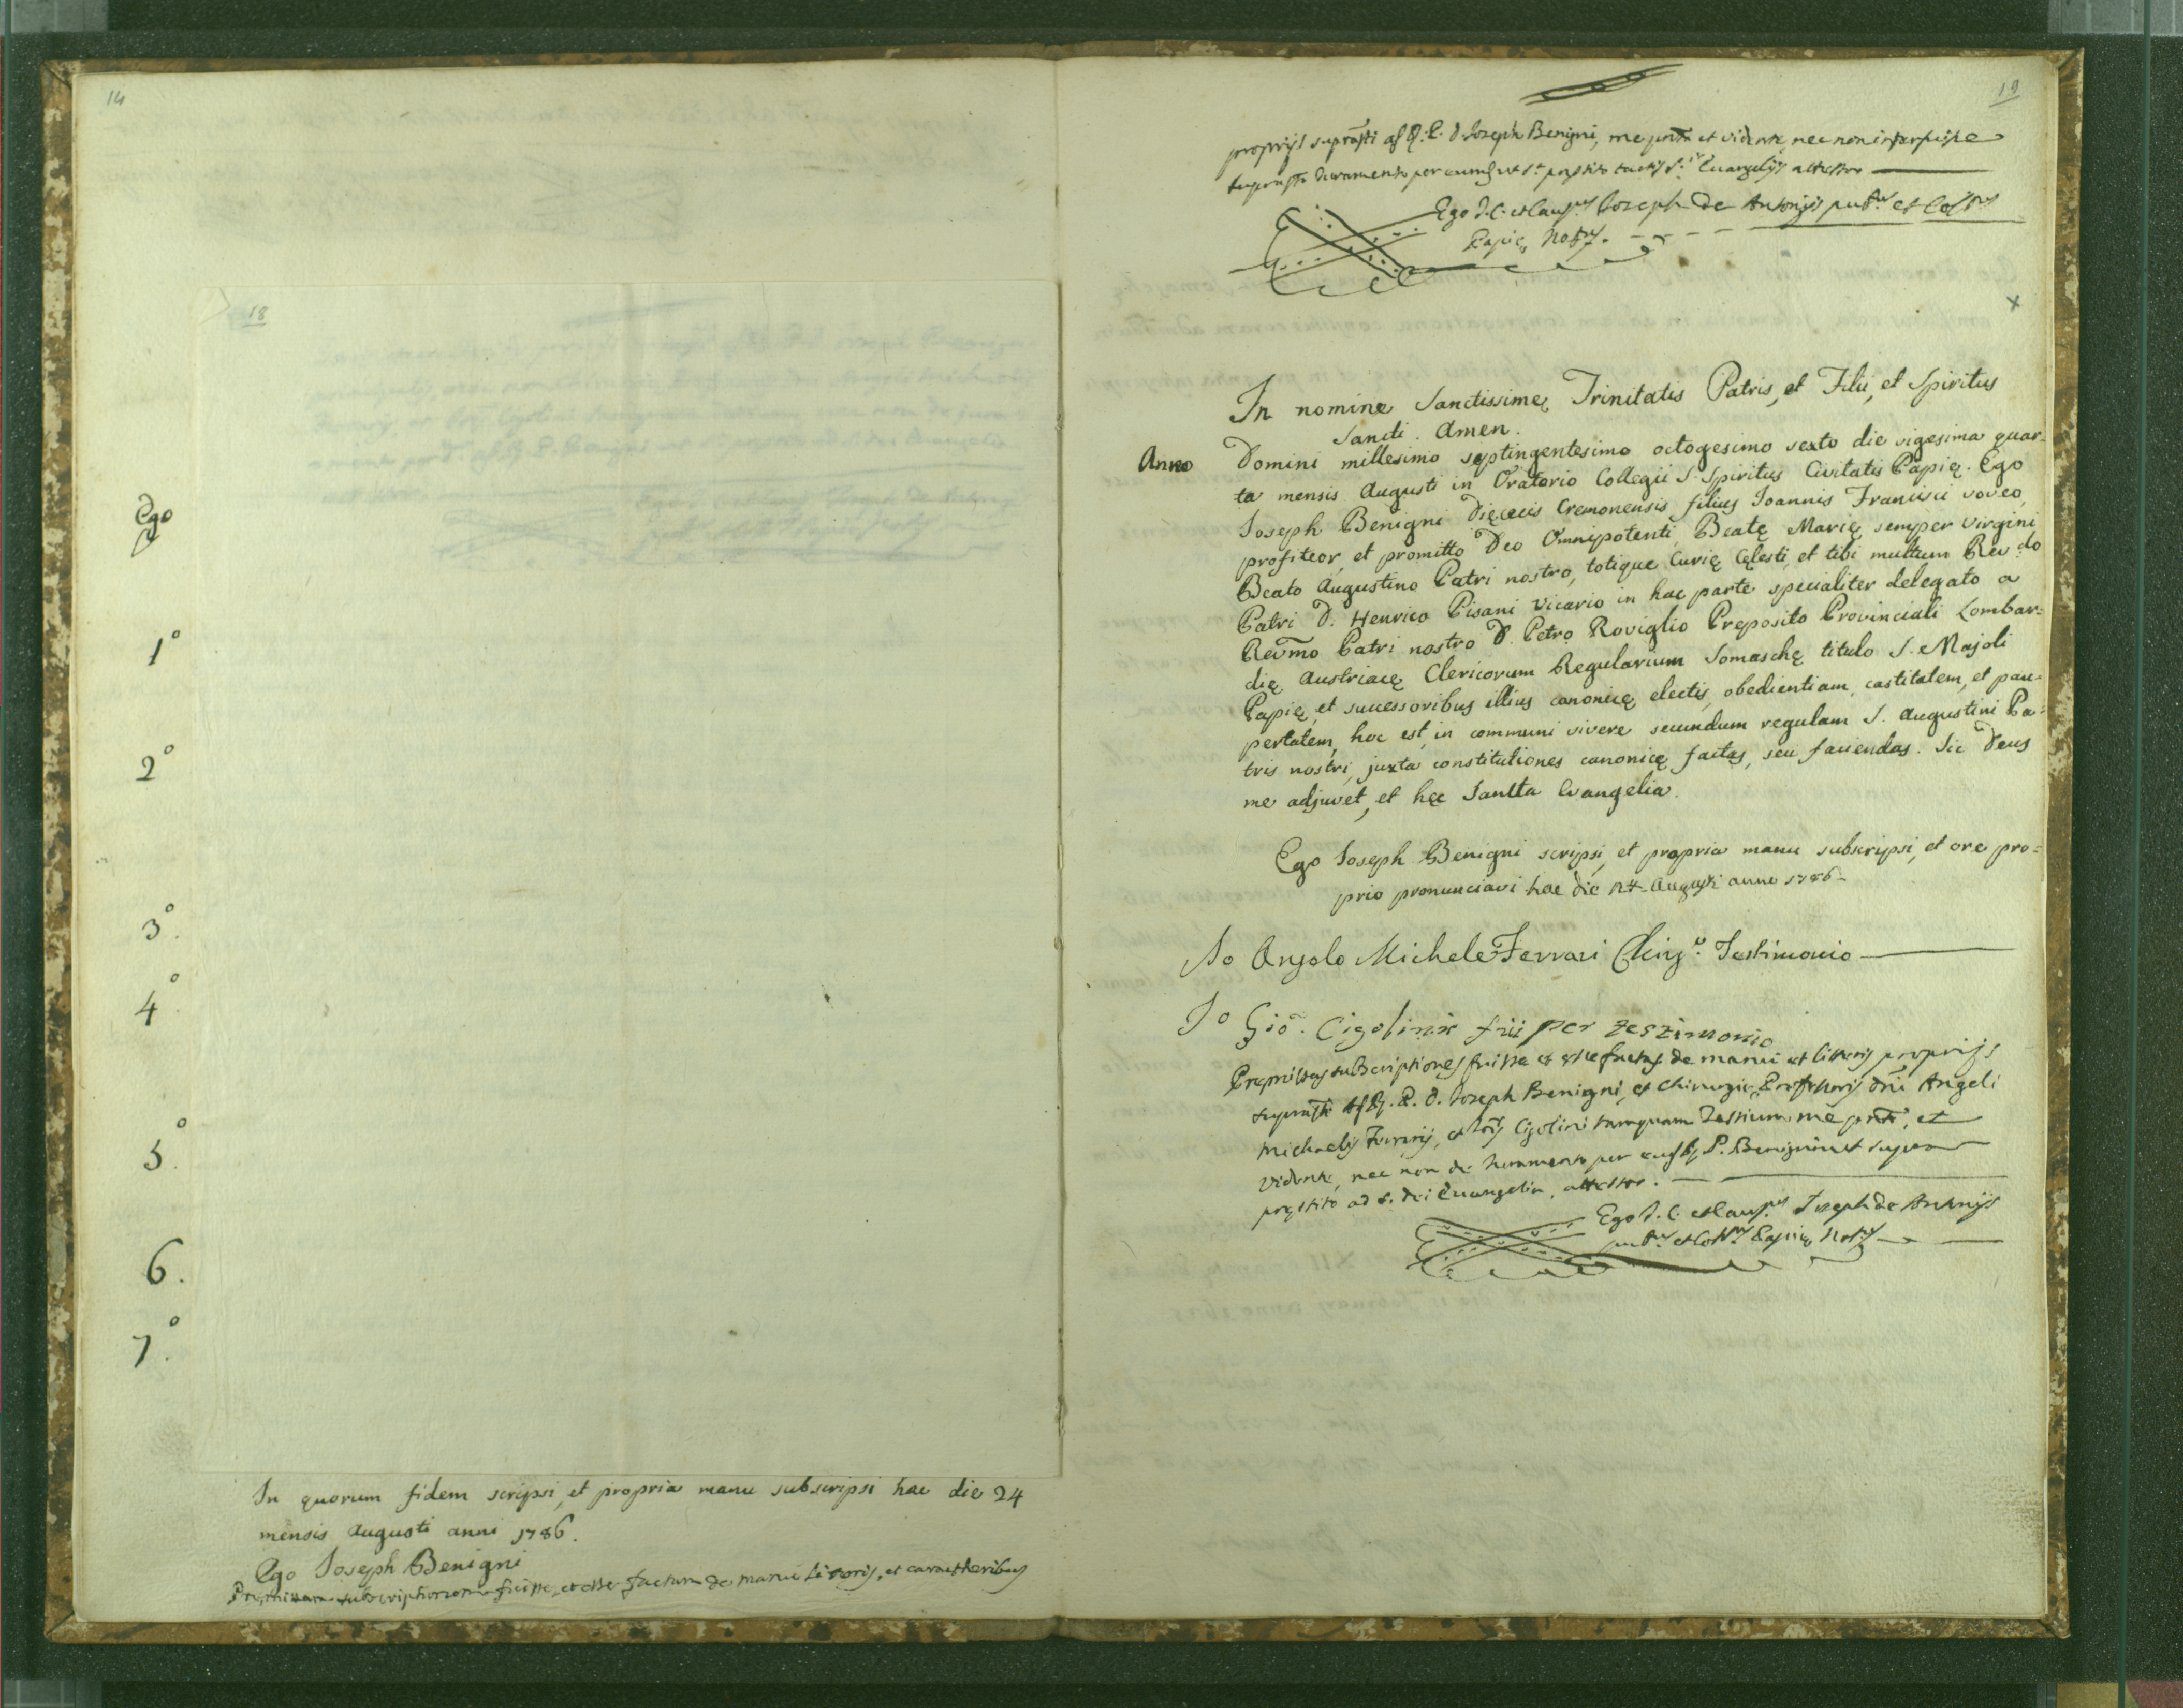 14
18
Ego
1°
2°
3°.
4°.
5°.
6.
7°.
In quorum fidem scripsi, et propria manu subscripsi hac die 24
mensis Augusti anni 1786.
Ego Joseph Benigni
Premissam subscriptionem fuisse, et esse factam de manu litteris, et caractheribus
19
proprijs suprasti Joseph Benigni, me et vidente, nec non interfuisse
juramento per eum tactis Evangelijs attestor
Ego J. C. et Joseph de Antonijs et
Papię
In nomine Sanctissimę Trinitatis Patris, et Filii, et Spiritus
Sancti. Amen.
Anno Domini millesimo septingentesimo octogesimo sexto die vigesima quar-
ta mensis Augusti in Oratorio Collegii S. Spiritus Civitatis Papię. Ego
Joseph Benigni Dięcecis Cremonensis filius Joannis Francisci voveo,
profiteor, et promitto Deo Omnipotenti, Beatę Marię semper Virgini,
Beato Augustino Patri nostro, totique Curię Cęlesti, et tibi multum Revdo
Patri D. Henrico Pisani Vicario in hac parte specialiter delegato a
Rev̄mo Patri nostro D. Petro Roviglio Preposito Provinciali Lombar-
dię Austriacę Clericorum Regularium Somaschę titulo S. Majoli
Papię, et successoribus illius canonicę electis, obedientiam, castitatem, et pau-
pertatem, hoc est, in communi vivere secundum regulam S. Augustini Pa-
tris nostri, juxta constitutiones canonicę factas, seu faciendas. Sic Deus
me adjuvet, et hęc Sancta Evangelia.
Ego Joseph Benigni scripsi, et propria manu subscripsi, et ore pro-
prio pronunciavi hac die 24 Augusti anno 1786
Io Angelo Michele Ferrari Testimonio
Io Gio. Cigolini fui per testimonio
subscriptiones fuisse et esse factas de manu et litteris proprijs
Joseph Benigni, et Chirurgię Professoris Dni Angeli
Michaelis Ferrarij, et Cigolini tamquam Testium, me, et
vidente, nec non de Juramento per P. Benigni ut supra
pręstito ad S. Dei Evangelia, attestor.
Ego J. C. et Joseph de Antonijs
et Papię